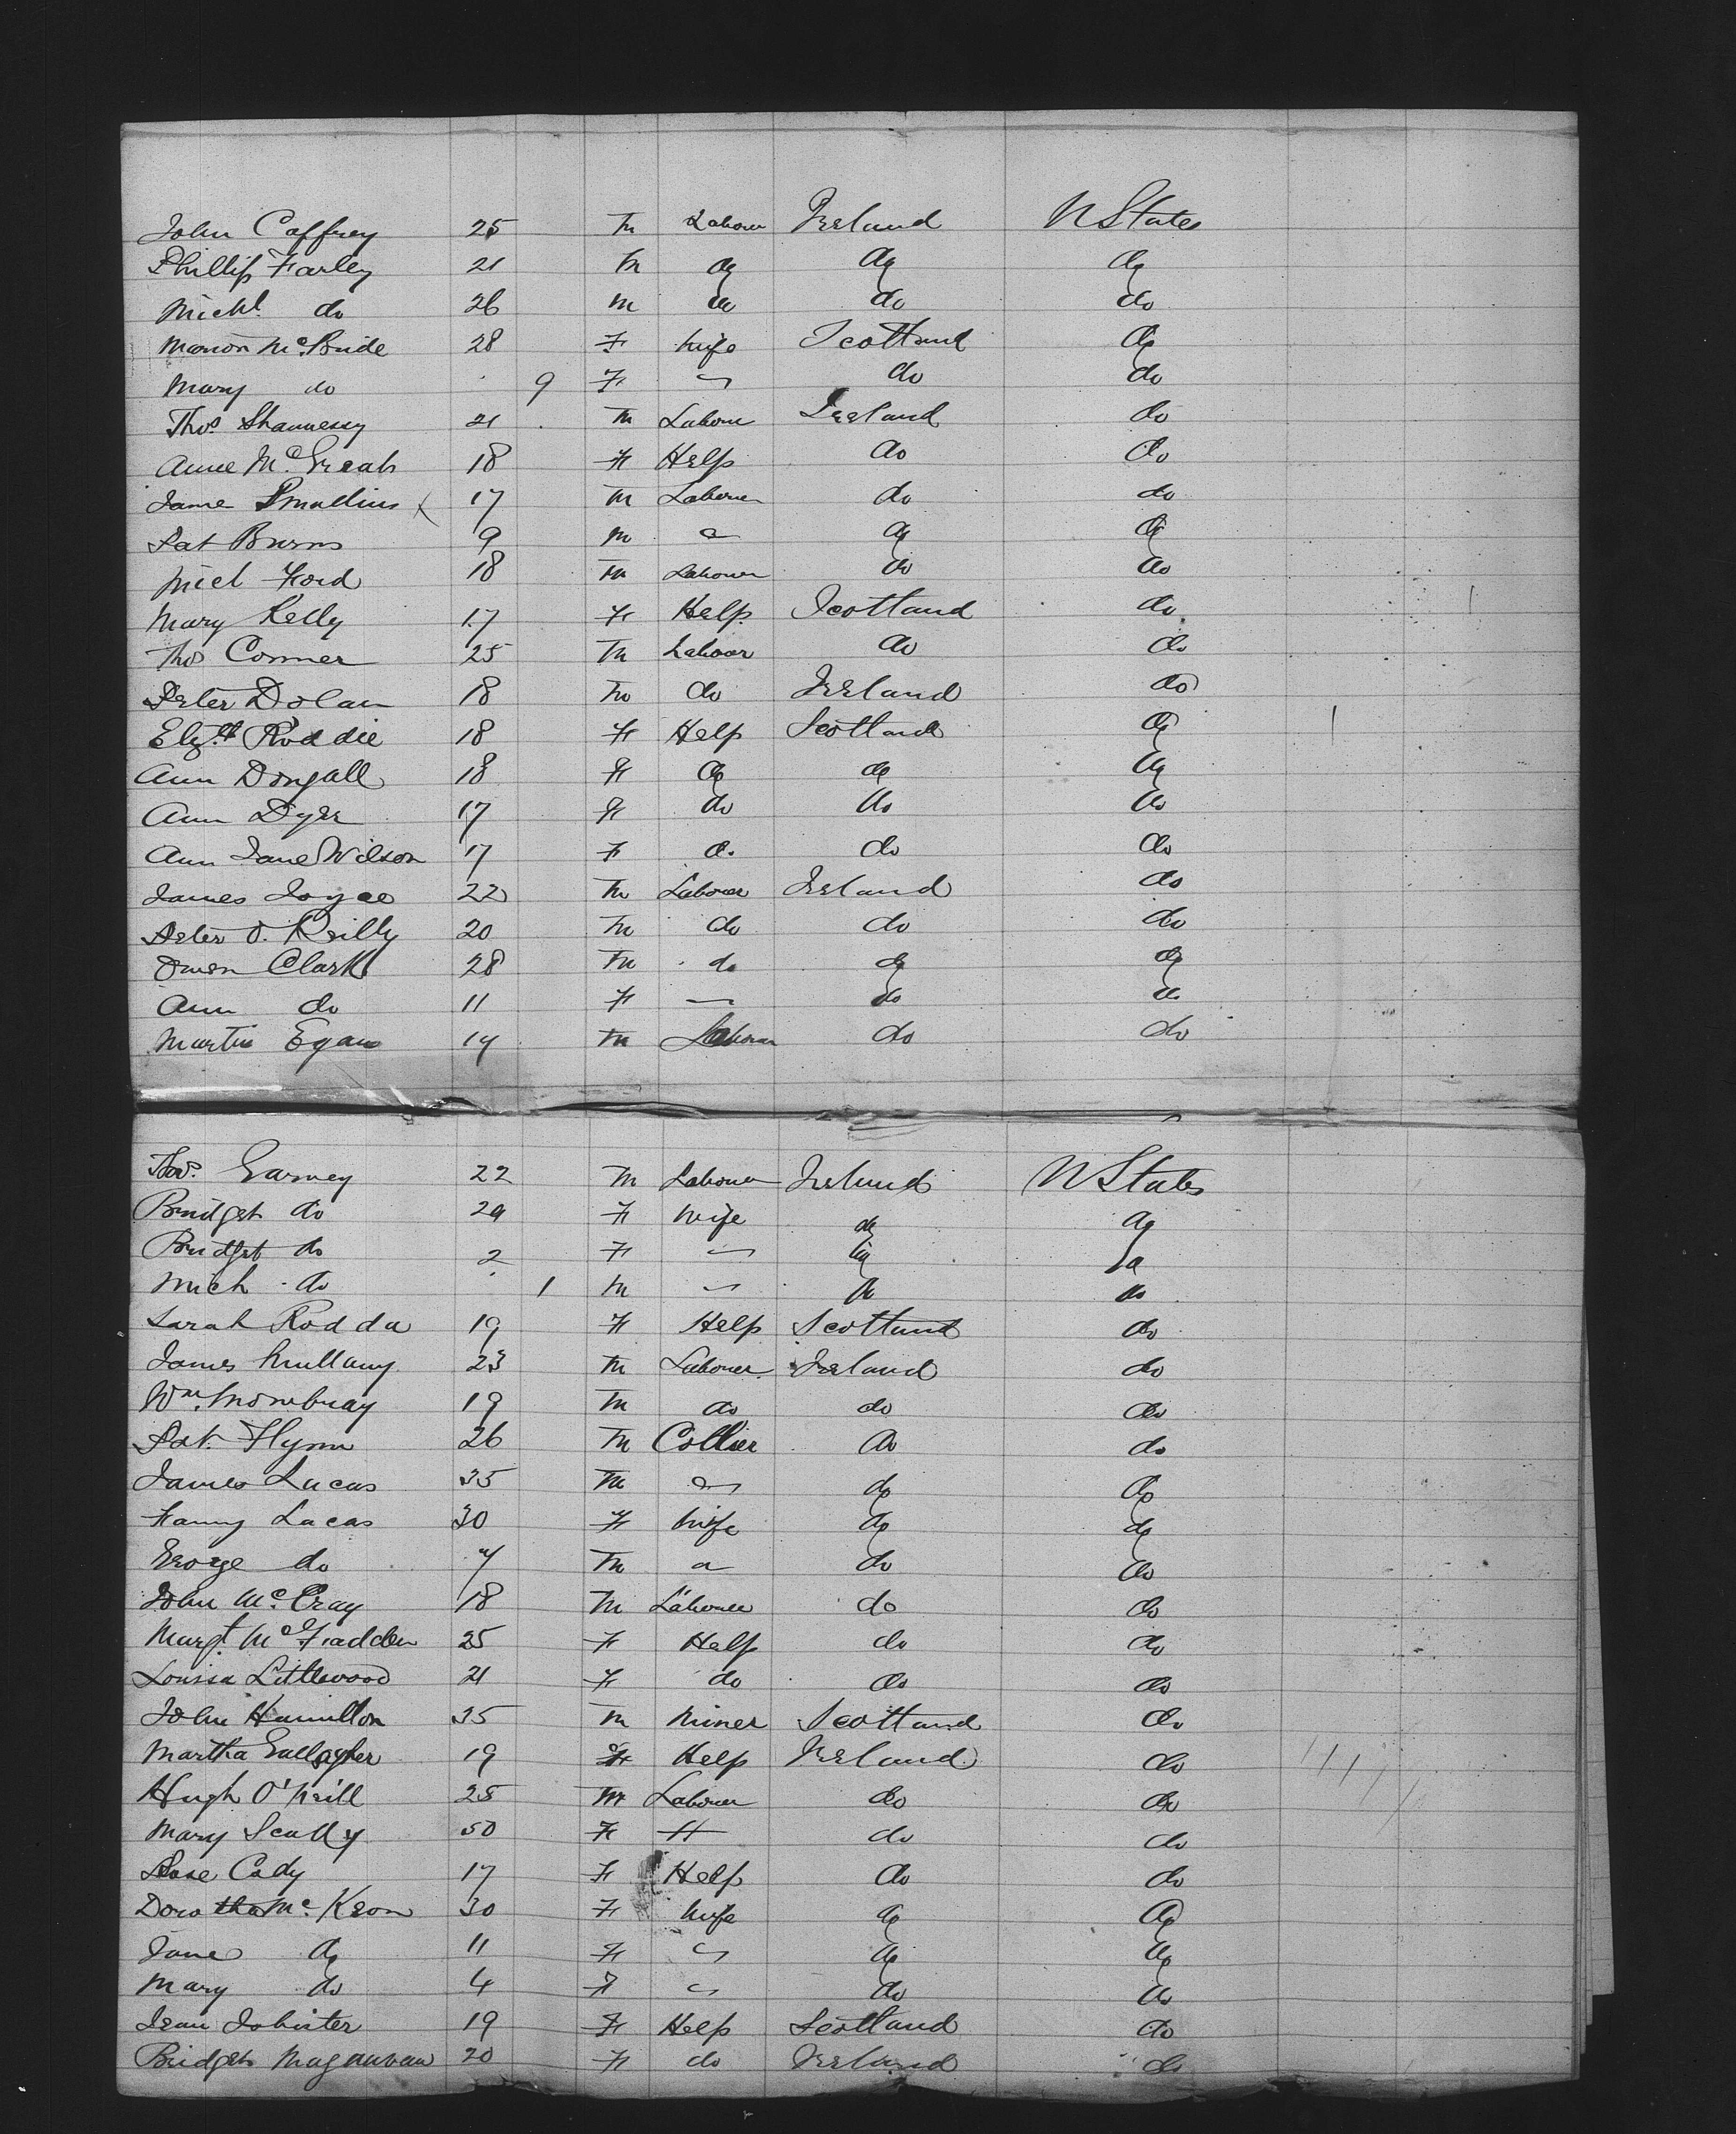 John Caffrey 25 m Labourer Ireland U States
Phillip Farley 21 m do do do
Michl do 26 m do do do
Marion McBride 28 F Wife Scotland do
Mary do 9 F " do do
Thos Shaunessy 21 m Labour Ireland do
Anne McGreah 18 F Help do do
Jame Smullins x 17 m Labourer do do
Pat Burns 9 m do do
Mich Ford 18 m Labourer do do
Mary Kelly 17 F Help Scotland do
Thos Conner 25 m Labour do do
Peter Dolan 18 m do Ireland do
Elizth Roddie 18 F Help Scotland do
Ann Dougall 18 F do do do
Ann Dyer 17 F do do do
Ann Jane Wilson 17 F do do do
James Joyce 22 m Labourer Ireland do
Peter O. Reilly 20 m do do do
Owen Clark 28 m do do do
Ann do 11 F — do do
Martin Egan 19 m Labourer do do
Thos. Garvey 22 m Labourer Ireland U States
Bridget do 29 F Wife do do
Bridget do 2 F " do do
Mich do 1 m " do do
Sarah Rodda 19 F Help Scotland do
James Mullany 23 m Labourer Ireland do
Wm. Mowbray 19 m do do do
Pat. Flynn 26 m Collier do do
James Lucas 35 m do do do
Fanny Lucas 30 F Wife do do
George do 7 m do do
John McCray 18 m Labourer do do
Margt McFadden 25 F Help do do
Louisa Littlewood 21 F do do do
John Hamilton 35 m Miner Scotland do
Martha Gallagher 19 F Help Ireland do
Hugh O'Neill 25 m Labourer do do
Mary Scally 50 F do do
Rose Cody 17 F Help do do
Dorotha McKeon 30 F Wife do do
Jane do 11 F " do do
Mary do 4 F " do do
Jean Johnster 19 F Help Scotland do
Bridget 20 F do Ireland do